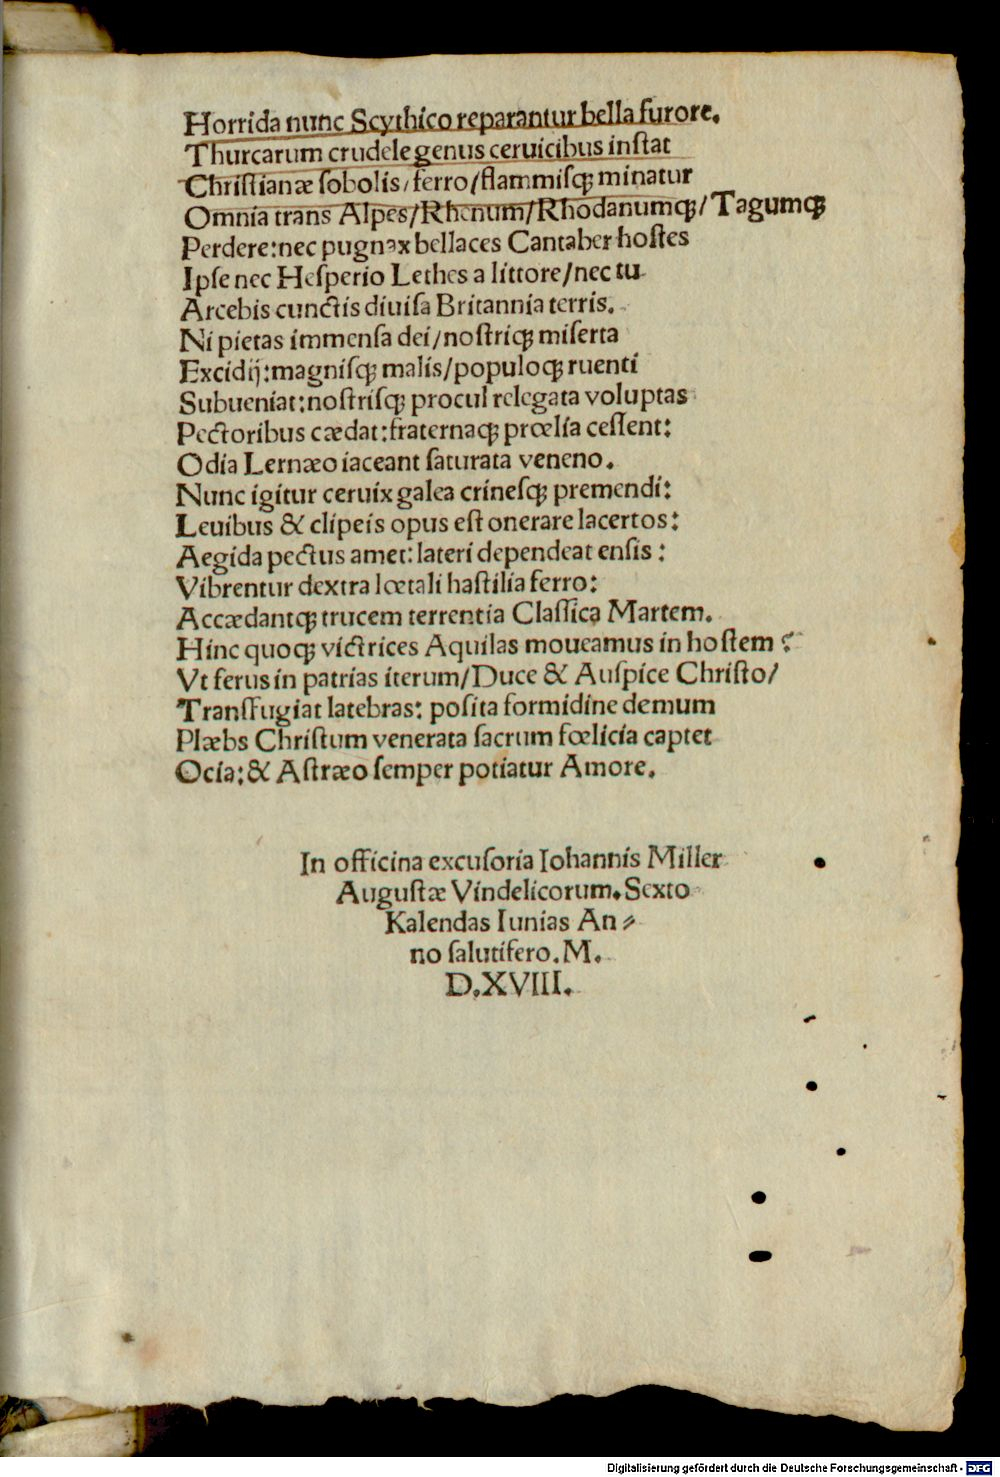 Horrida nunc Scythico reparantur bella furore.
Thurcarum crudele genus ceruicibus inſtat
Chriſtianæ ſobolis/ferro/flammiſq; minatur
Omnia trans Alpes/Rhenum/Rhodanumq;/Tagumq;
Perdere:nec pugnax bellaces Cantaber hoſtes
Ipſe nec Heſperio Lethes a littore/nec tu
Arcebis cunctis diuiſa Britannia terris.
Ni pietas immenſa dei/noſtriq; miſerta
Excidij:magniſq; malis/populoq; ruenti
Subueniat:noſtriſq; procul relegata voluptas
Pectoribus cædat:fraternaq; prœlia ceſſent:
Odia Lernæo iaceant ſaturata veneno.
Nunc igitur ceruix galea crineſq; premendi:
Leuibus & clipeis opus eſt onerare lacertos:
Aegida pectus amet:lateri dependeat enſis:
Vibrentur dextra lœtali haſtilia ferro:
Accædantq; trucem terrentia Claſſica Martem.
Hinc quoq; victrices Aquilas moueamus in hoſtem:
Vt ferus in patrias iterum/Duce & Auſpice Chriſto/
Tranſfugiat latebras: poſita formidine demum
Plæbs Chriſtum venerata ſacrum fœlicia captet
Ocia:& Aſtræo ſemper potiatur Amore.
In officina excuſoria Iohannis Miller
Auguſtæ Vindelicorum. Sexto
Kalendas Iunias An⸗
no ſalutifero. M.
D.XVIII.
Digitalisierung gefördert durch die Deutsche Forschungsgemeinschaft - DFG